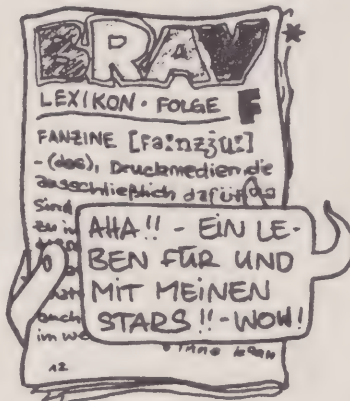 BRAV
LEXIKON · FOLGE F
FANZINE [fa:nzju:]
- (das), Druckmedien, die
ausschließlich dafür da
sind
zu
AHA!! - EIN LE-
BEN FÜR UND
MIT MEINEN
STARS!! - WOW!
auch
im
12
*